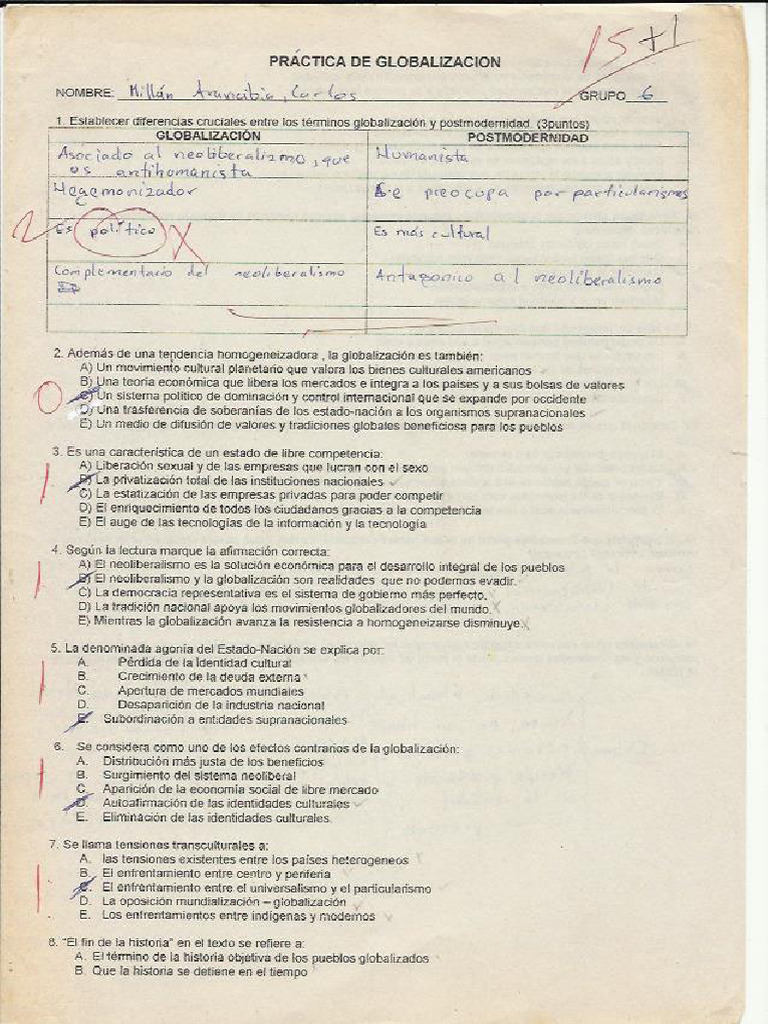 15+1
PRÁCTICA DE GLOBALIZACION
NOMBRE: Millán Arancibia, Carlos GRUPO 6
1. Establecer diferencias cruciales entre los términos globalización y postmodernidad. (3puntos)
GLOBALIZACIÓN POSTMODERNIDAD
Asociado al neoliberalismo, que Humanista
es antihumanista
Hegemonizador Se preocupa por particularismos
2 Es político X Es más cultural
Complementario del neoliberalismo Antagonico al neoliberalismo
2. Además de una tendencia homogeneizadora , la globalización es también:
A) Un movimiento cultural planetario que valora los bienes culturales americanos
B) Una teoría económica que libera los mercados e integra a los países y a sus bolsas de valores
0 C) Un sistema político de dominación y control internacional que se expande por occidente
D) Una trasferencia de soberanías de los estado-nación a los organismos supranacionales
E) Un medio de difusión de valores y tradiciones globales beneficiosa para los pueblos
3. Es una característica de un estado de libre competencia:
A) Liberación sexual y de las empresas que lucran con el sexo
1 B) La privatización total de las instituciones nacionales
C) La estatización de las empresas privadas para poder competir
D) El enriquecimiento de todos los ciudadanos gracias a la competencia
E) El auge de las tecnologías de la información y la tecnología
4. Según la lectura marque la afirmación correcta:
A) El neoliberalismo es la solución económica para el desarrollo integral de los pueblos
1 B) El neoliberalismo y la globalización son realidades que no podemos evadir.
C) La democracia representativa es el sistema de gobierno más perfecto.
D) La tradición nacional apoya los movimientos globalizadores del mundo.
E) Mientras la globalización avanza la resistencia a homogeneizarse disminuye.
5. La denominada agonía del Estado-Nación se explica por:
A. Pérdida de la Identidad cultural
B. Crecimiento de la deuda externa
1 C. Apertura de mercados mundiales
D. Desaparición de la industria nacional
E. Subordinación a entidades supranacionales
6. Se considera como uno de los efectos contrarios de la globalización:
A. Distribución más justa de los beneficios
B. Surgimiento del sistema neoliberal
1 C. Aparición de la economía social de libre mercado
D. Autoafirmación de las identidades culturales
E. Eliminación de las identidades culturales.
7. Se llama tensiones transculturales a:
A. las tensiones existentes entre los países heterogeneos
B. El enfrentamiento entre centro y periferia
1 C. El enfrentamiento entre el universalismo y el particularismo
D. La oposición mundialización – globalización
E. Los enfrentamientos entre indígenas y modernos
8. "El fin de la historia" en el texto se refiere a:
A. El término de la historia objetiva de los pueblos globalizados
B. Que la historia se detiene en el tiempo